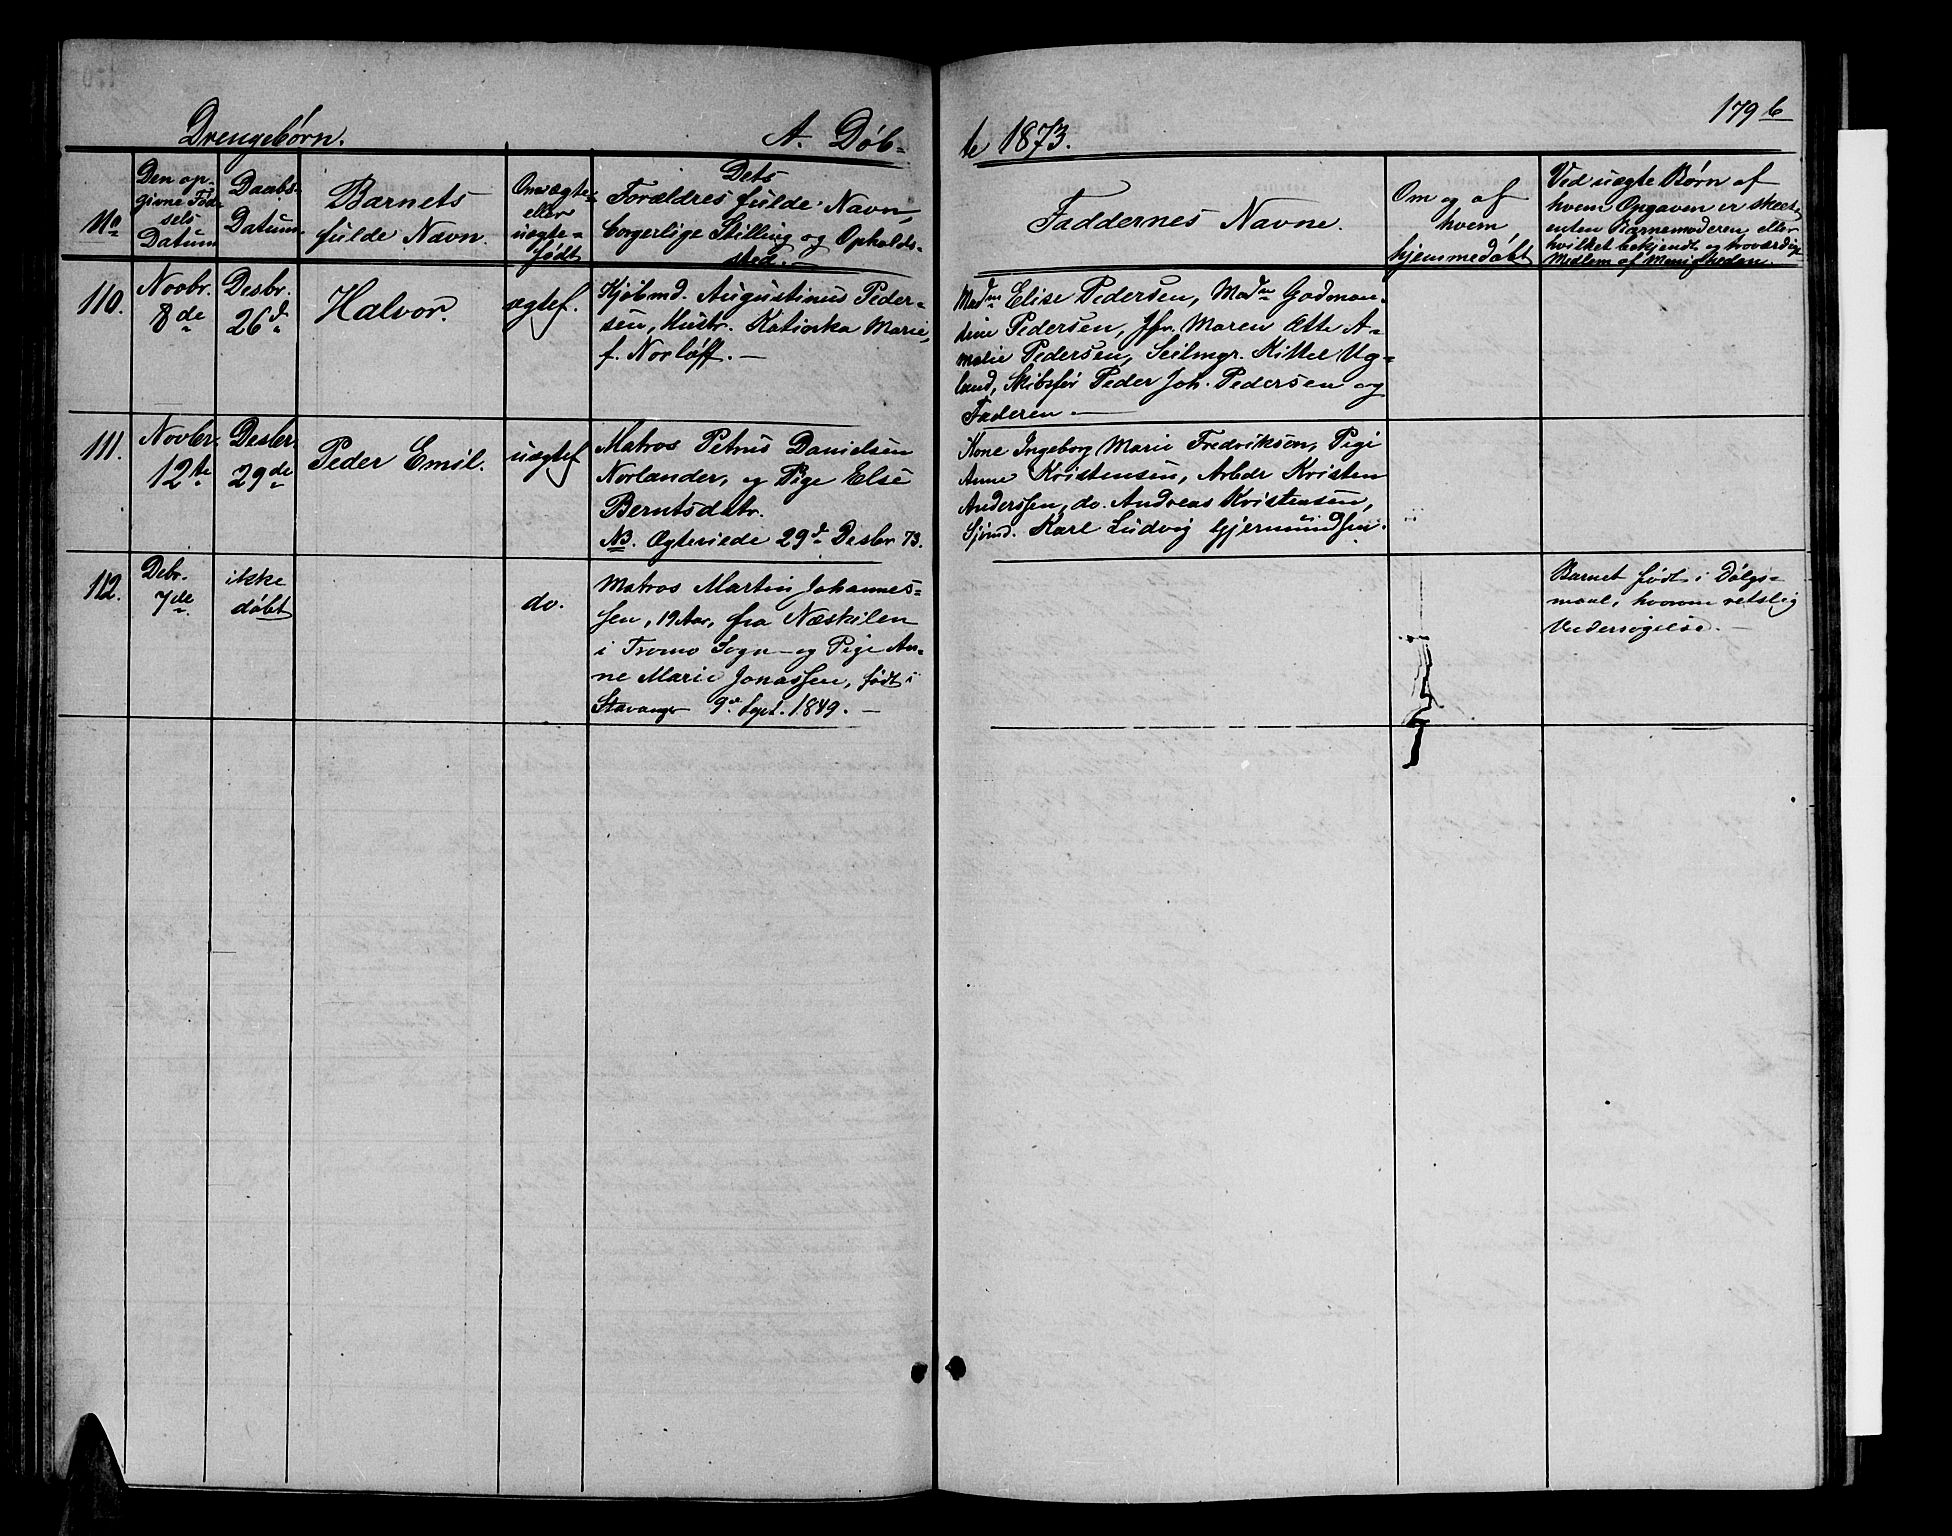 179 b
Drengebørn. A. Døb-
te 1873.
No
Den op-
givne Fød-
sels
Datum
Daabs-
Datum.
Barnets
fulde Navn.
Om ægte-
eller
uægte-
født
Dets
Forældres fulde Navn,
borgerlige Stilling og Opholds-
sted.
Faddernes Navne.
Om og af
hvem
hjemmedøbt
Ved uægte Børn af
hvem Opgaven er skeet,
enten Barnemoderen eller
hvilket bekjendt og troværdigt
Medlem af Menigheden.
110.
Novbr.
8de
Desbr.
26d.
Halvor.
ægtef.
Kjøbmd. Augustinus Peder-
sen, Hustr. Katinka Marie,
f. Norløff. —
Madm Elise Pedersen, Madm Gudmon-
dine Pedersen, Jfr. Maren Ætte A-
malie Pedersen, Seilmgr. Kittel Ug-
land, Skibsfør Peder Joh. Pedersen og
Faderen. —
111.
Novber.
12te
Desber.
29de
Peder Emil.
uægtef
Matros Petrus Danielsen
Norlander, og Pige Else
Berntsdatr.
NB. Ægteviede 29d. Desbr 73.
Kone Ingeborg Marie Fredriksen, Pige
Anne Kristensen, Arbdr Kristen
Anderssen, do. Andreas Kristensen,
Sjømd. Karl Ludvig Gjermundsen.
112.
Debr.
7de
ikke
døbt
do.
Matros Martin Johannes-
sen, 19 Aar, fra Næskilen
i Tromø Sogn — og Pige An-
ne Marie Jonassen, født i
Stavanger 9d. Sept. 1849. —
Barnet født i Dølgs-
maal, hvorom retslig
Undersøgelse. —